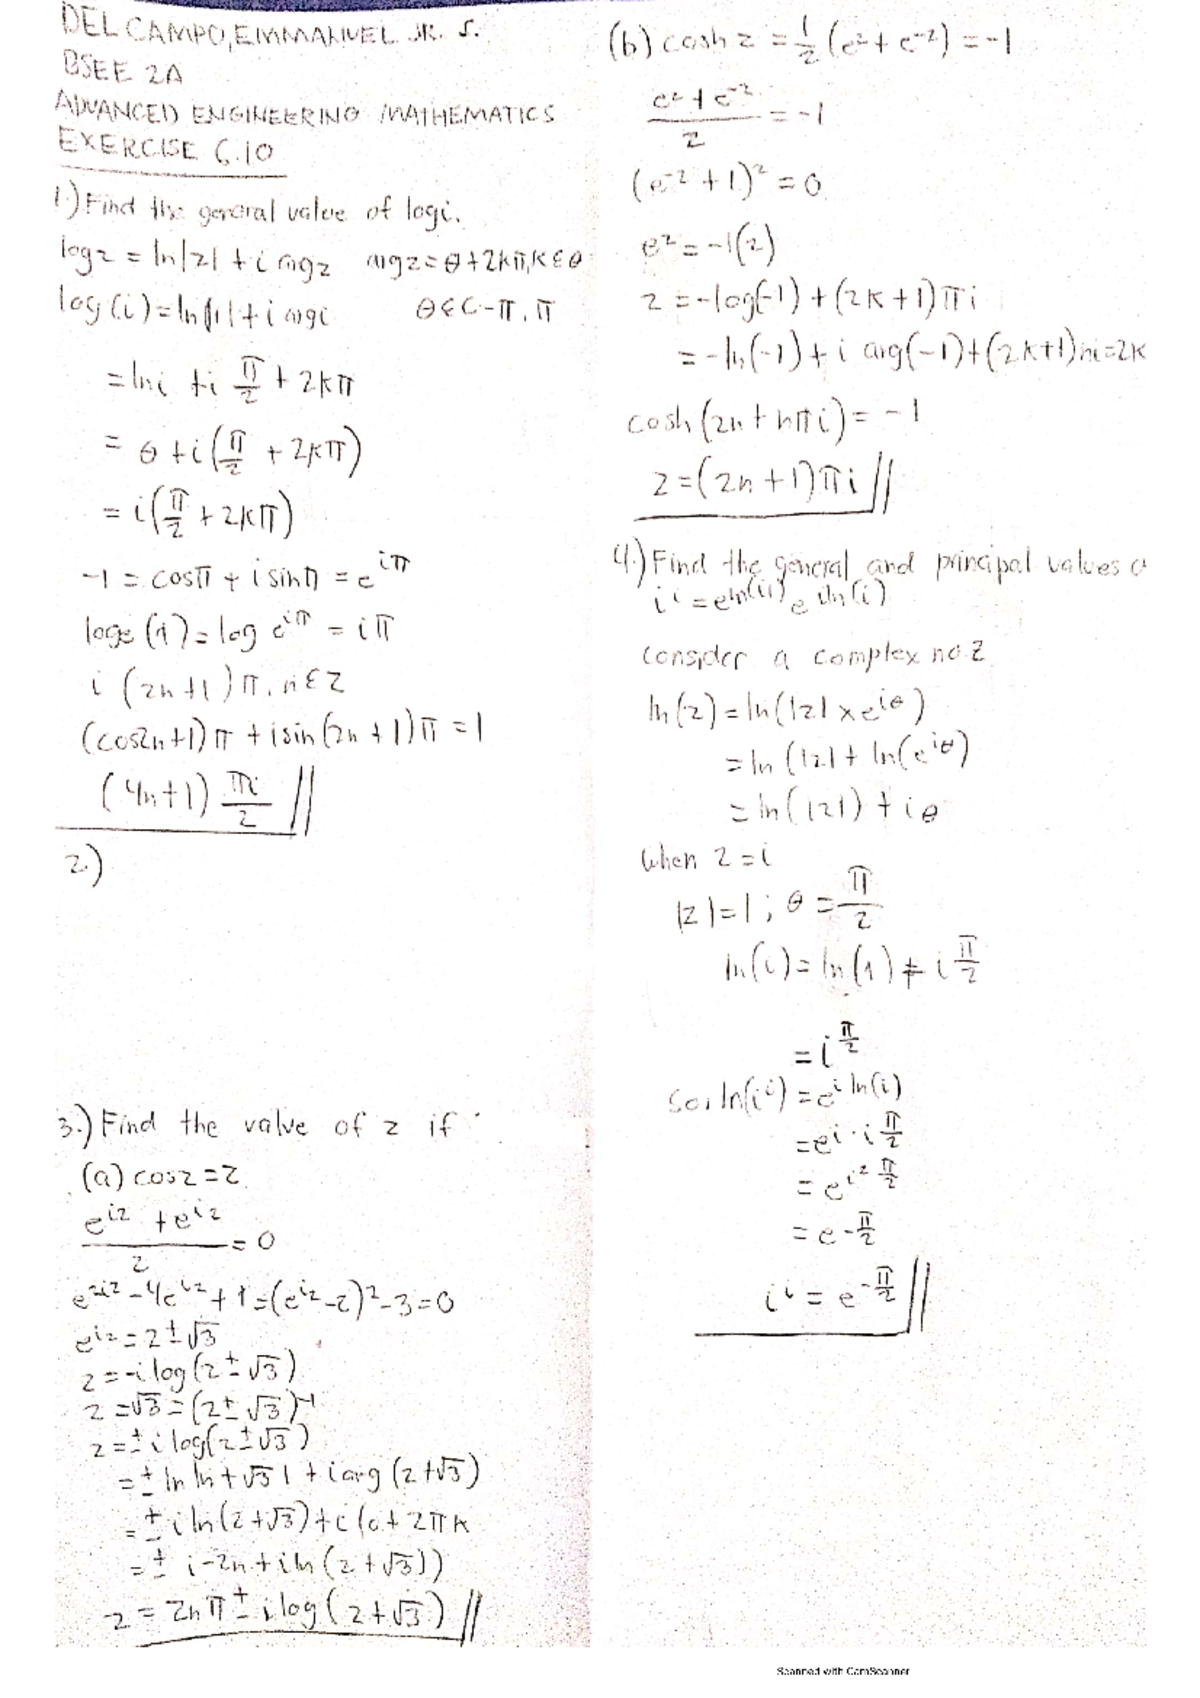 DEL CAMPO, EMMANUEL JR. S.
BSEE 2A
ADVANCED ENGINEERING MATHEMATICS
EXERCISE 6.10
1.) Find the general value of logi.
logz = ln|z| + i argz argz = θ + 2kπ, K ε θ
log(i) = ln|i| + i argi θ ε (-π, π
= lni + i π/2 + 2kπ
= θ + i(π/2 + 2kπ)
= i(π/2 + 2kπ)
-1 = cosπ + i sinπ = e^iπ
loge(1) = log e^iπ = iπ
i (2n+1)π, n ε z
(cos2n+1)π + isin(2n+1)π = 1
(4n+1) πi/2 //
2.)
3.) Find the value of z if:
(a) cosz = 2
e^iz + e^iz / 2 = 0
e^2iz - 4e^iz + 1 = (e^iz - 2)^2 - 3 = 0
e^iz = 2 ± √3
z = -i log(2 ± √3)
z = √3 = (2 ± √3)^-1
z = ± i log(2 ± √3)
= ± ln ln + √3 | + i arg(2+√3)
= ± i ln(2+√3) + i(0 + 2πk
= ± i - 2n + i ln(2+√3))
z = 2nπ ± i log(2+√3) //
(b) cosh z = 1/2 (e^z + e^-z) = -1
e^z + e^-z / 2 = -1
(e^-z + 1)^2 = 0
e^z = -1(2)
z = -log(-1) + (2k+1)πi
= -ln(-1) + i arg(-1) + (2k+1)πi = 2k
cosh(2n + nπi) = -1
z = (2n+1)πi //
4.) Find the general and principal values
i^i = e^ln(i^i) e^iln(i)
consider a complex no. z
ln(z) = ln(|z| x e^iθ)
= ln(|z| + ln(e^iθ)
= ln(|z|) + iθ
when z = i
|z| = 1; θ = π/2
ln(i) = ln(1) + i π/2
= i π/2
So, ln(i^i) = e^i ln(i)
= e^i·i π/2
= e^i^2 π/2
= e - π/2
i^i = e^-π/2 //
Scanned with CamScanner